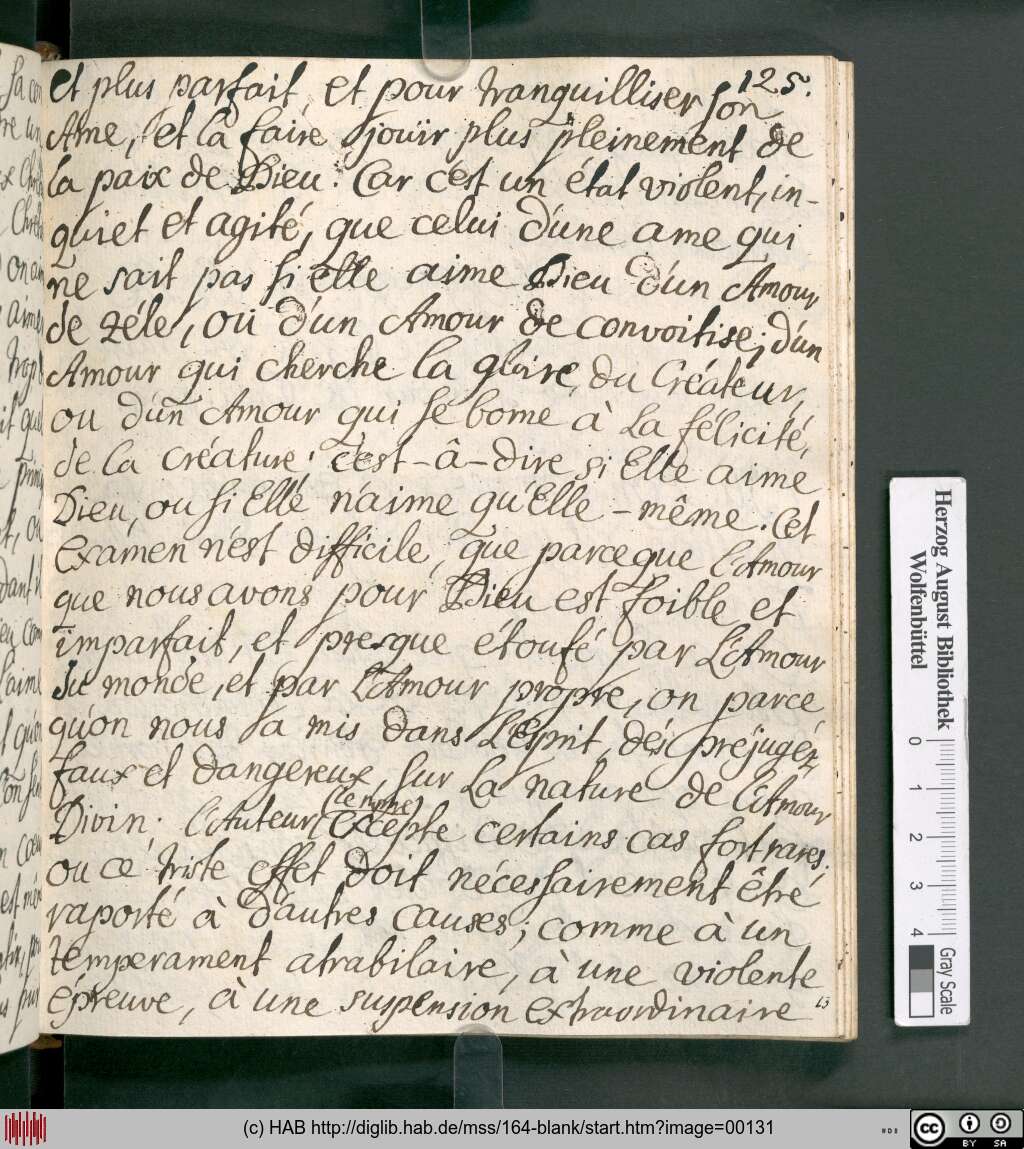 125.
et plus parfait, et pour tranquilliser son
Ame, et la faire joüir plus pleinement de
la paix de Dieu. Car c'est un état violent, in-
quiet et agité, que celui d'une ame qui
ne sait pas si elle aime Dieu d'un Amour
de zéle, ou d'un Amour de convoitise; d'un
Amour qui cherche la gloire du Créateur,
ou d'un Amour qui se borne à la félicité,
de la créature: c'est-à-dire, si Elle aime
Dieu, ou si Elle n'aime qu'Elle-même. Cet
Examen n'est difficile, que parceque l'Amour
que nous avons pour Dieu est foible et
imparfait, et presque étoufé par L'Amour
du monde, et par L'Amour propre, on parce
qu'on nous a mis dans L'Esprit, dés préjugéz
faux et dangereux, sur La nature de l'Amour
Divin. l'Auteur Excepte certains cas fort rares.
ou ce triste effet doit nécessairement être
raporté à d'autres causes; comme à un
temperament atrabilaire, à une violente
épreuve, à une suspension extraordinaire
13
Herzog August Bibliothek
Wolfenbüttel
0 1 2 3 4
Gray Scale
(c) HAB http://diglib.hab.de/mss/164-blank/start.htm?image=00131
cc BY SA